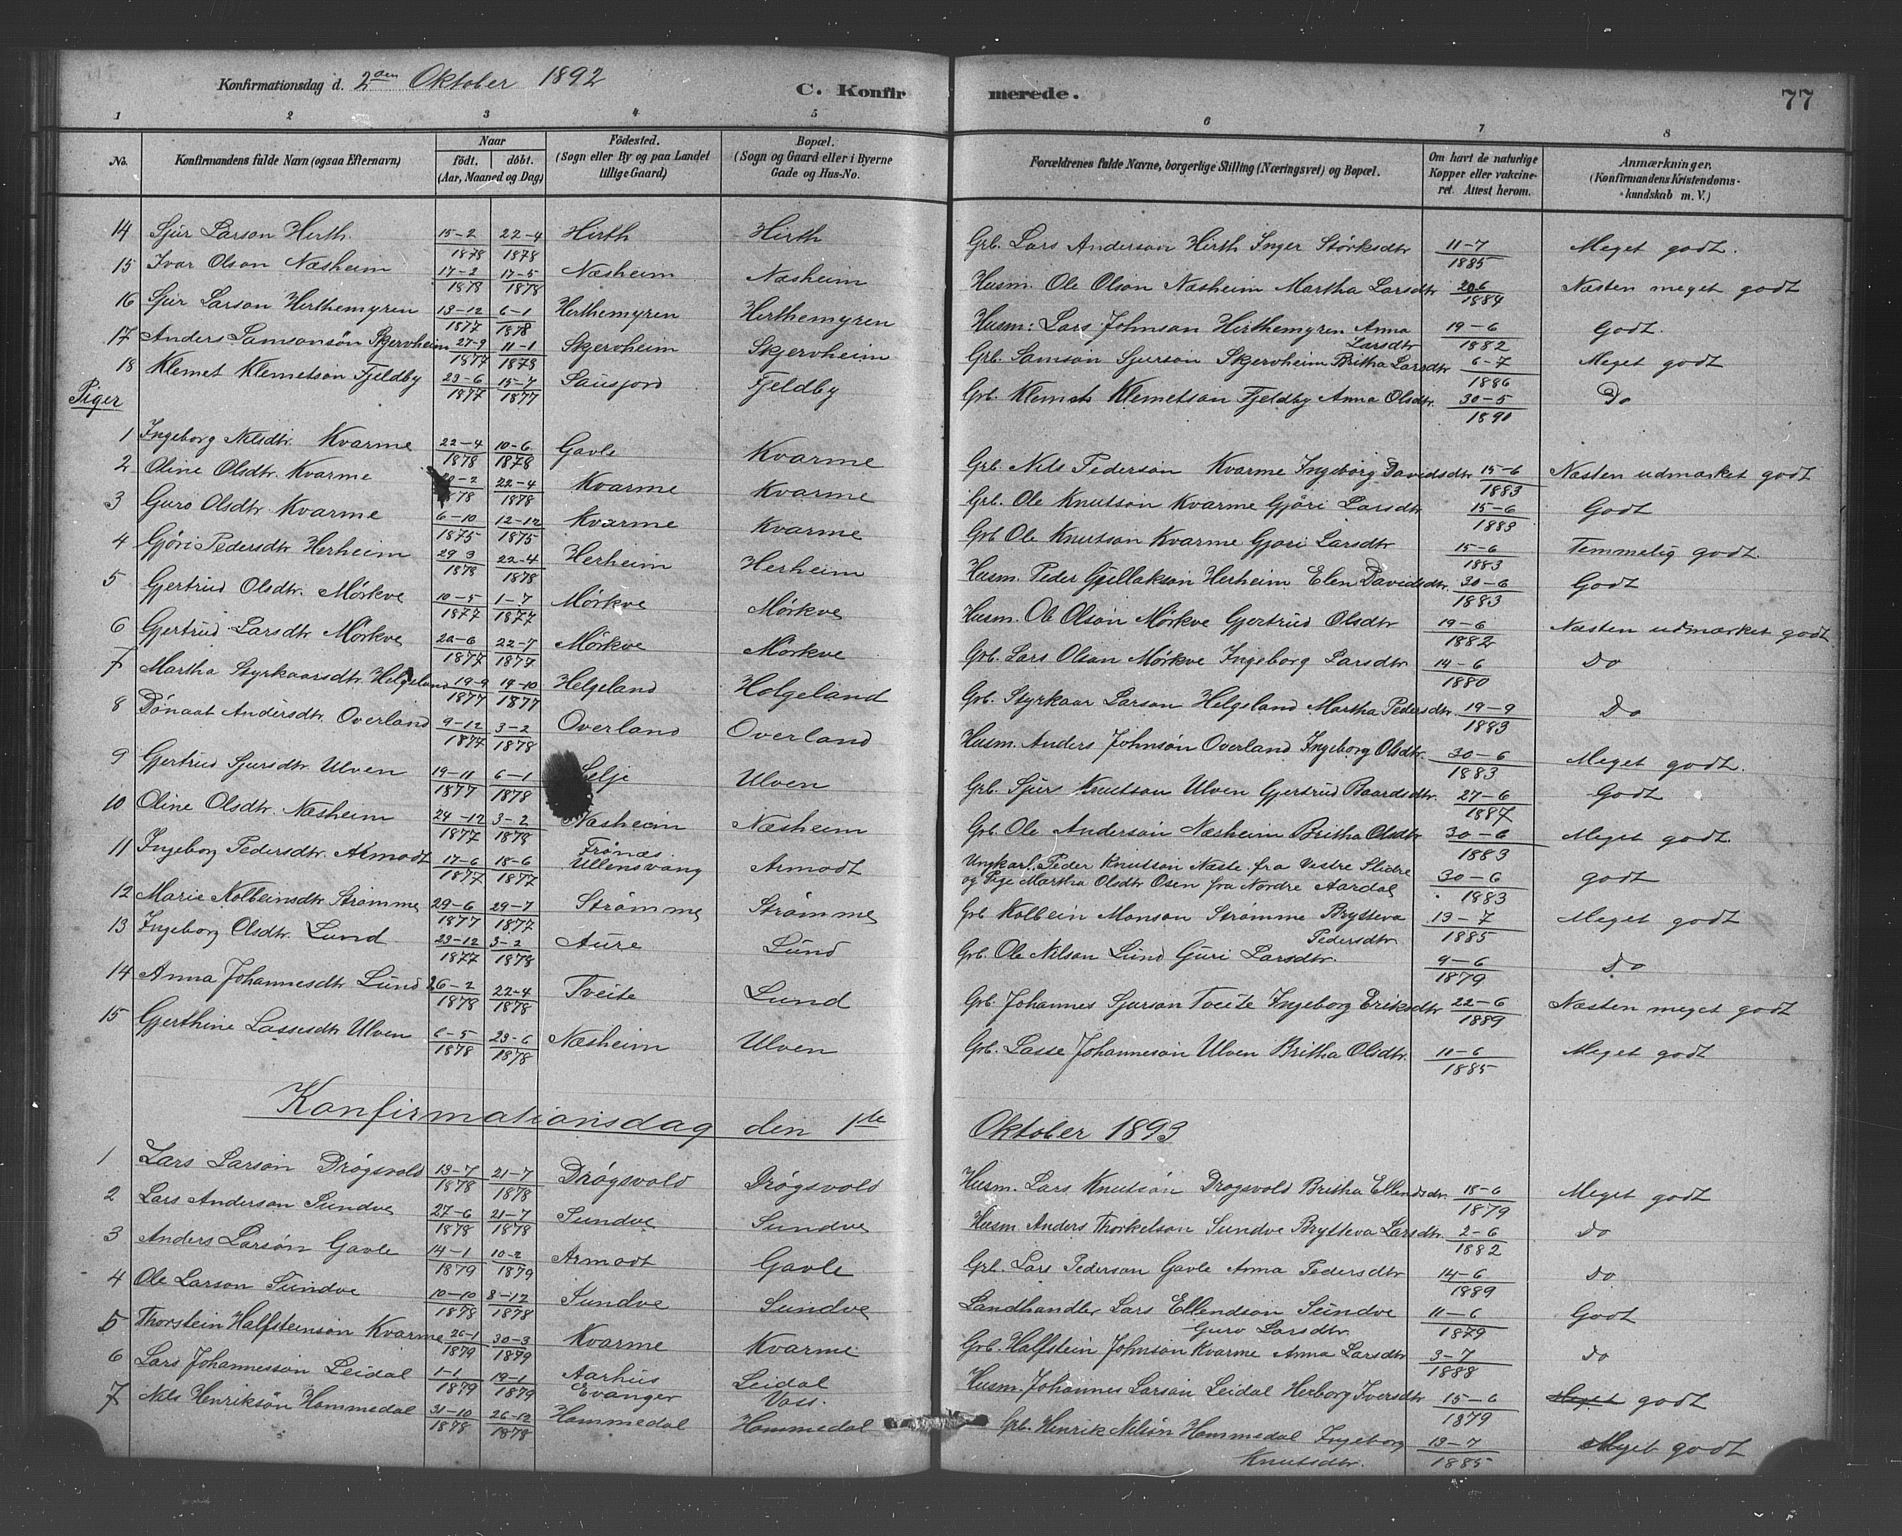 Konfirmationsdag d. 2den Oktober 1892 C. Konfirmerede. 77
1 2 3 4 5 6 7 8
No. Konfirmandens fulde Navn (ogsaa Efternavn) Naar født, døbt. (Aar, Maaned og Dag) Fødested. (Sogn eller By og paa Landet tillige Gaard) Bopæl. (Sogn og Gaard eller i Byerne Gade og Hus-No. Forældrenes fulde Navne, borgerlige Stilling (Næringsvei) og Bopæl. Om havt de naturlige Kopper eller vakcineret. Attest herom. Anmærkninger. (Konfirmandens Kristendomskundskab m. V.)
14 Sjur Larson Herth 15-2 1878 22-4 1878 Hirth Hirth Grb. Lars Anderson Hirth Inger Størksdtr 11-7 1885 Meget godt.
15 Ivar Olson Næsheim 17-2 1878 17-5 1878 Næsheim Næsheim Husm. Ole Olson Næsheim Martha Larsdtr 20-6 1884 Næsten meget godt
16 Sjur Larson Herthemyren 13-12 1877 6-1 1878 Herthemyren Herthemyren Husm: Lars Johnson Hirthemyren Anna Larsdtr 19-6 1882 Godt.
17 Anders Samsonsøn Skjervheim 27-9 1877 11-1 1878 Skjervheim Skjervheim Grb. Samson Sjurson Skjervheim Britha Larsdtr 6-7 1886 Meget godt
18 Klemet Klemetsøn Fjeldby 23-6 1877 15-7 1877 Sausjord Fjeldby Grb. Klemet Klemetson Fjeldby Anna Olsdtr. 30-5 1890 Do
Piger
1 Ingeborg Nilsdtr. Kvarme 22-4 1878 10-6 1878 Gavle Kvarme Grb. Nils Pederson Kvarme Ingeborg Davidsdtr 15-6 1883 Næsten udmærket godt
2 Oline Olsdtr. Kvarme 10-2 1878 22-4 1878 Kvarme Kvarme Grb. Ole Knutson Kvarme Gjøri Larsdtr 15-6 1883 Godt
3 Guro Olsdtr Kvarme 6-10 1875 12-12 1875 Kvarme Kvarme Grb. Ole Knutson Kvarme Gjøri Larsdtr 15-6 1883 Temmelig godt
4 Gjøri Pedersdtr Herheim 29-3 1878 22-4 1878 Herheim Herheim Husm. Peder Gjellakson Herheim Elen Davidsdtr. 30-6 1883 Godt
5 Gjertrud Olsdtr. Mørkve 10-5 1877 1-7 1877 Mørkve Mørkve Husm. Ole Olson Mørkve Gjertrud Olsdtr 19-6 1882 Næsten udmærket godt
6 Gjertrud Larsdtr Mørkve 20-6 1877 22-7 1877 Mørkve Mørkve Grb. Lars Olson Mørkve Ingeborg Larsdtr 14-6 1880 Do
7 Martha Styrkaarsdtr. Helgeland 19-9 1877 14-10 1877 Helgeland Helgeland Grb. Styrkaar Larson Helgeland Martha Pedersdtr 19-9 1883 Do
8 Dønaat Andersdtr. Overland 9-12 1877 3-2 1878 Overland Overland Husm. Anders Johnsøn Overland Ingeborg Olsdtr. 30-6 1883 Meget godt.
9 Gjertrud Sjursdtr. Ulven 19-11 1877 6-1 1878 Selje Ulven Grb. Sjurs Knutson Ulven Gjertrud Baardsdtr. 27-6 1887 Godt
10 Oline Olsdtr. Næsheim 24-12 1877 3-2 1878 Næsheim Næsheim Grb. Ole Anderson Næsheim Britha Olsdtr 30-6 1883 Meget godt.
11 Ingeborg Pedersdtr. Armodt 17-6 1877 18-6 1877 Frønæs Ullensvang Armodt Ungkarl. Peder Knutson Næste fra Vestre Slidre og Pige Martha Olsdtr Osen fra Nordre Aardal 30-6 1883 godt
12 Marie Kolbeinsdtr Strømme 29-6 1877 29-7 1877 Strømme Strømme Grb Kolbein Monson Strømme Brytteva Pedersdtr. 13-7 1885 Meget godt
13 Ingeborg Olsdtr. Lund 23-12 1877 3-2 1878 Aure Lund Grb. Ole Nilson Lund Guri Larsdtr. 9-6 1879 Do
14 Anna Johannesdtr Lund 26-2 1878 22-4 1878 Tveite Lund Grb. Johannes Sjurson Tveite Ingeborg Eriksdtr 22-6 1889 Næsten meget godt
15 Gjerthine Lassesdtr Ulven 6-5 1878 23-6 1878 Næsheim Ulven Grb. Lasse Johanneson Ulven Britha Olsdtr. 10-6 1885 Meget godt
Konfirmationsdag den 1ste Oktober 1893
1 Lars Larson Drøgsvold 13-7 1878 21-7 1878 Drøgsvold Drøgsvold Husm. Lars Knutson Drøgsvold Britha Ellendsdtr 18-6 1879 Meget godt
2 Lars Anderson Sundve 27-6 1878 21-7 1878 Sundve Sundve Husm Anders Thorkelson Sundve Brytteva Larsdtr. 2-6 1882 Do
3 Anders Larsøn Gavle 14-1 1879 10-2 1879 Armodt Gavle Grb. Lars Pederson Gavle Anna Pedersdtr 14-6 1889 Do
4 Ole Larson Sundve 10-10 1878 8-12 1878 Sundve Sundve Landhandler Lars Ellendson Sundve Guro Larsdtr. 11-6 1879 Godt
5 Thorstein Halfsteinsøn Kvarme 26-1 1879 30-3 1879 Kvarme Kvarme Grb. Halfstein Johnson Kvarme Anna Larsdtr 3-7 1888 Do
6 Lars Johannesson Leidal 1-1 1879 19-1 1879 Aarhus Evanger Leidal Voss. Husm. Johannes Larson Leidal Herborg Iversdtr 15-6 1879 Meget godt
7 Nils Henriksøn Hommedal 31-10 1878 26-12 1878 Hommedal Hommedal Grb. Henrik Nilson Hommedal Ingeborg Knutsdtr. 13-7 1885 Meget godt